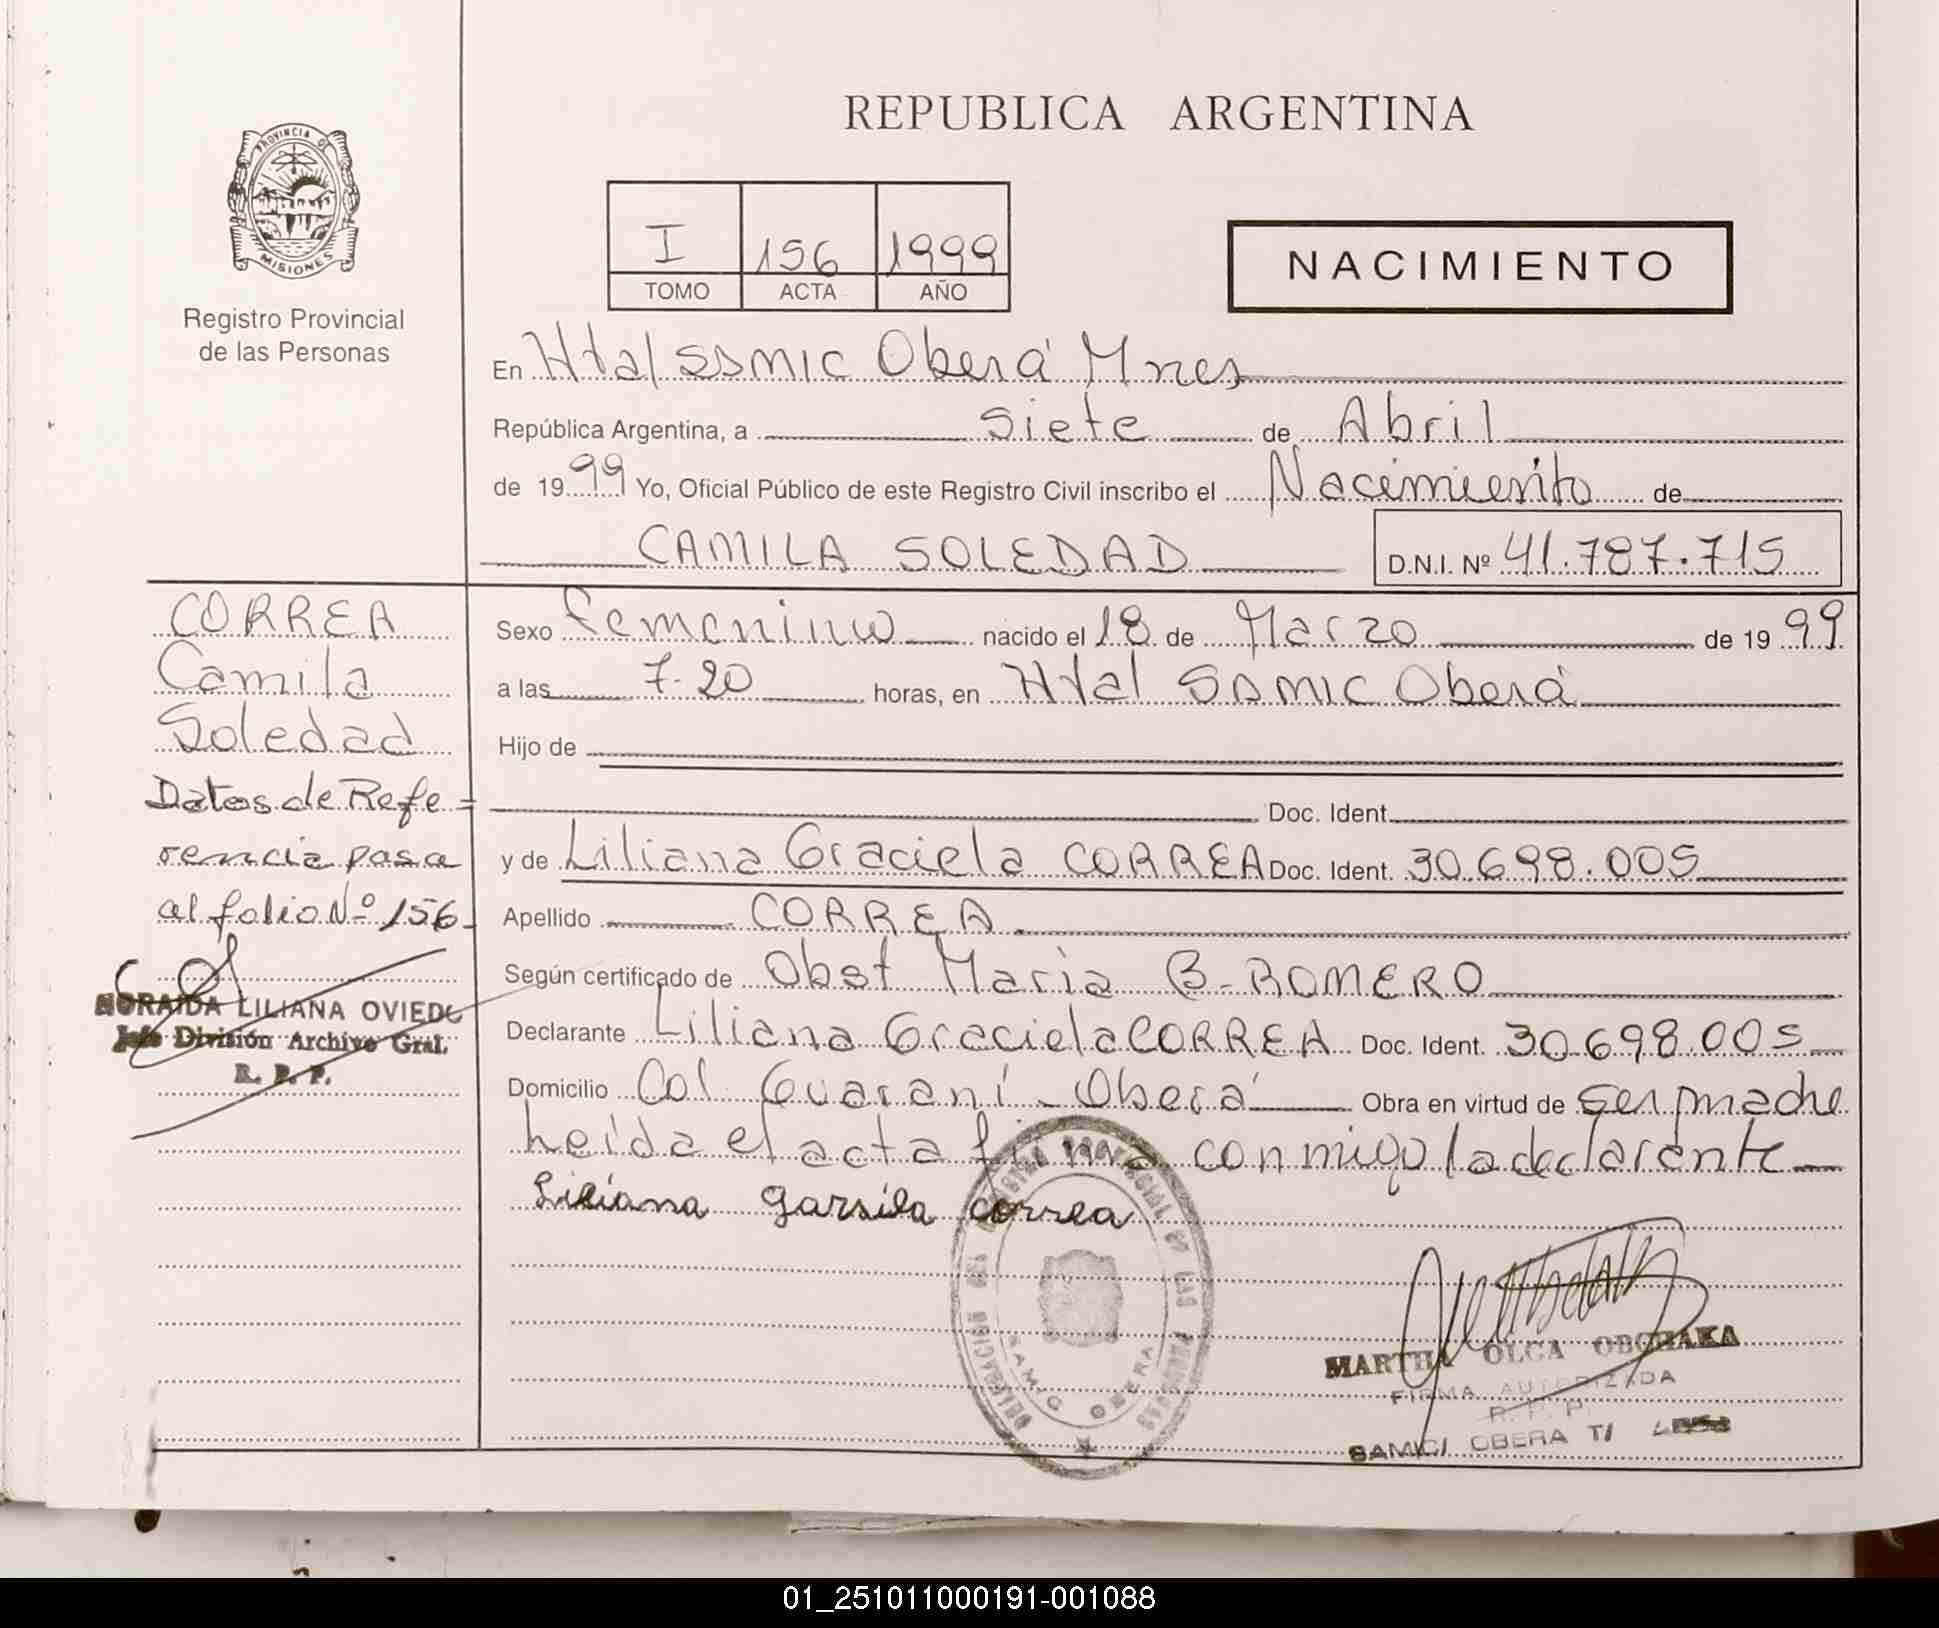 REPUBLICA ARGENTINA
PROVINCIA DE
MISIONES
Registro Provincial
de las Personas
I 156 1999
TOMO ACTA AÑO
NACIMIENTO
En Htal SSMIC Oberá Mnes
República Argentina, a siete de Abril
de 1999 Yo, Oficial Público de este Registro Civil inscribo el Nacimiento de
CAMILA SOLEDAD D.N.I. Nº 41.787.715
CORREA
Camila
Soledad
Datos de Refe=
rencia pasa
al folio Nº 156
NORAIDA LILIANA OVIEDO
Jefe División Archivo Gral.
R. P. P.
Sexo femenino nacido el 18 de Marzo de 1999
a las 7.20 horas, en Htal SAMIC Oberá
Hijo de
Doc. Ident.
y de Liliana Graciela CORREA Doc. Ident. 30.698.005
Apellido CORREA
Según certificado de Obst Maria B. ROMERO
Declarante Liliana Graciela CORREA Doc. Ident. 30.698.005
Domicilio Col Guaraní - Oberá Obra en virtud de ser madre
Leída el acta firma conmigo la declarante
Liliana garsiela correa
DELEGACION DEL REGISTRO PROVINCIAL DE LAS PERSONAS
SAMIC OBERA
MARTHA OLGA OBCHAKA
FIRMA AUTORIZADA
R. P. P.
SAMIC/ OBERA T/
01_251011000191-001088